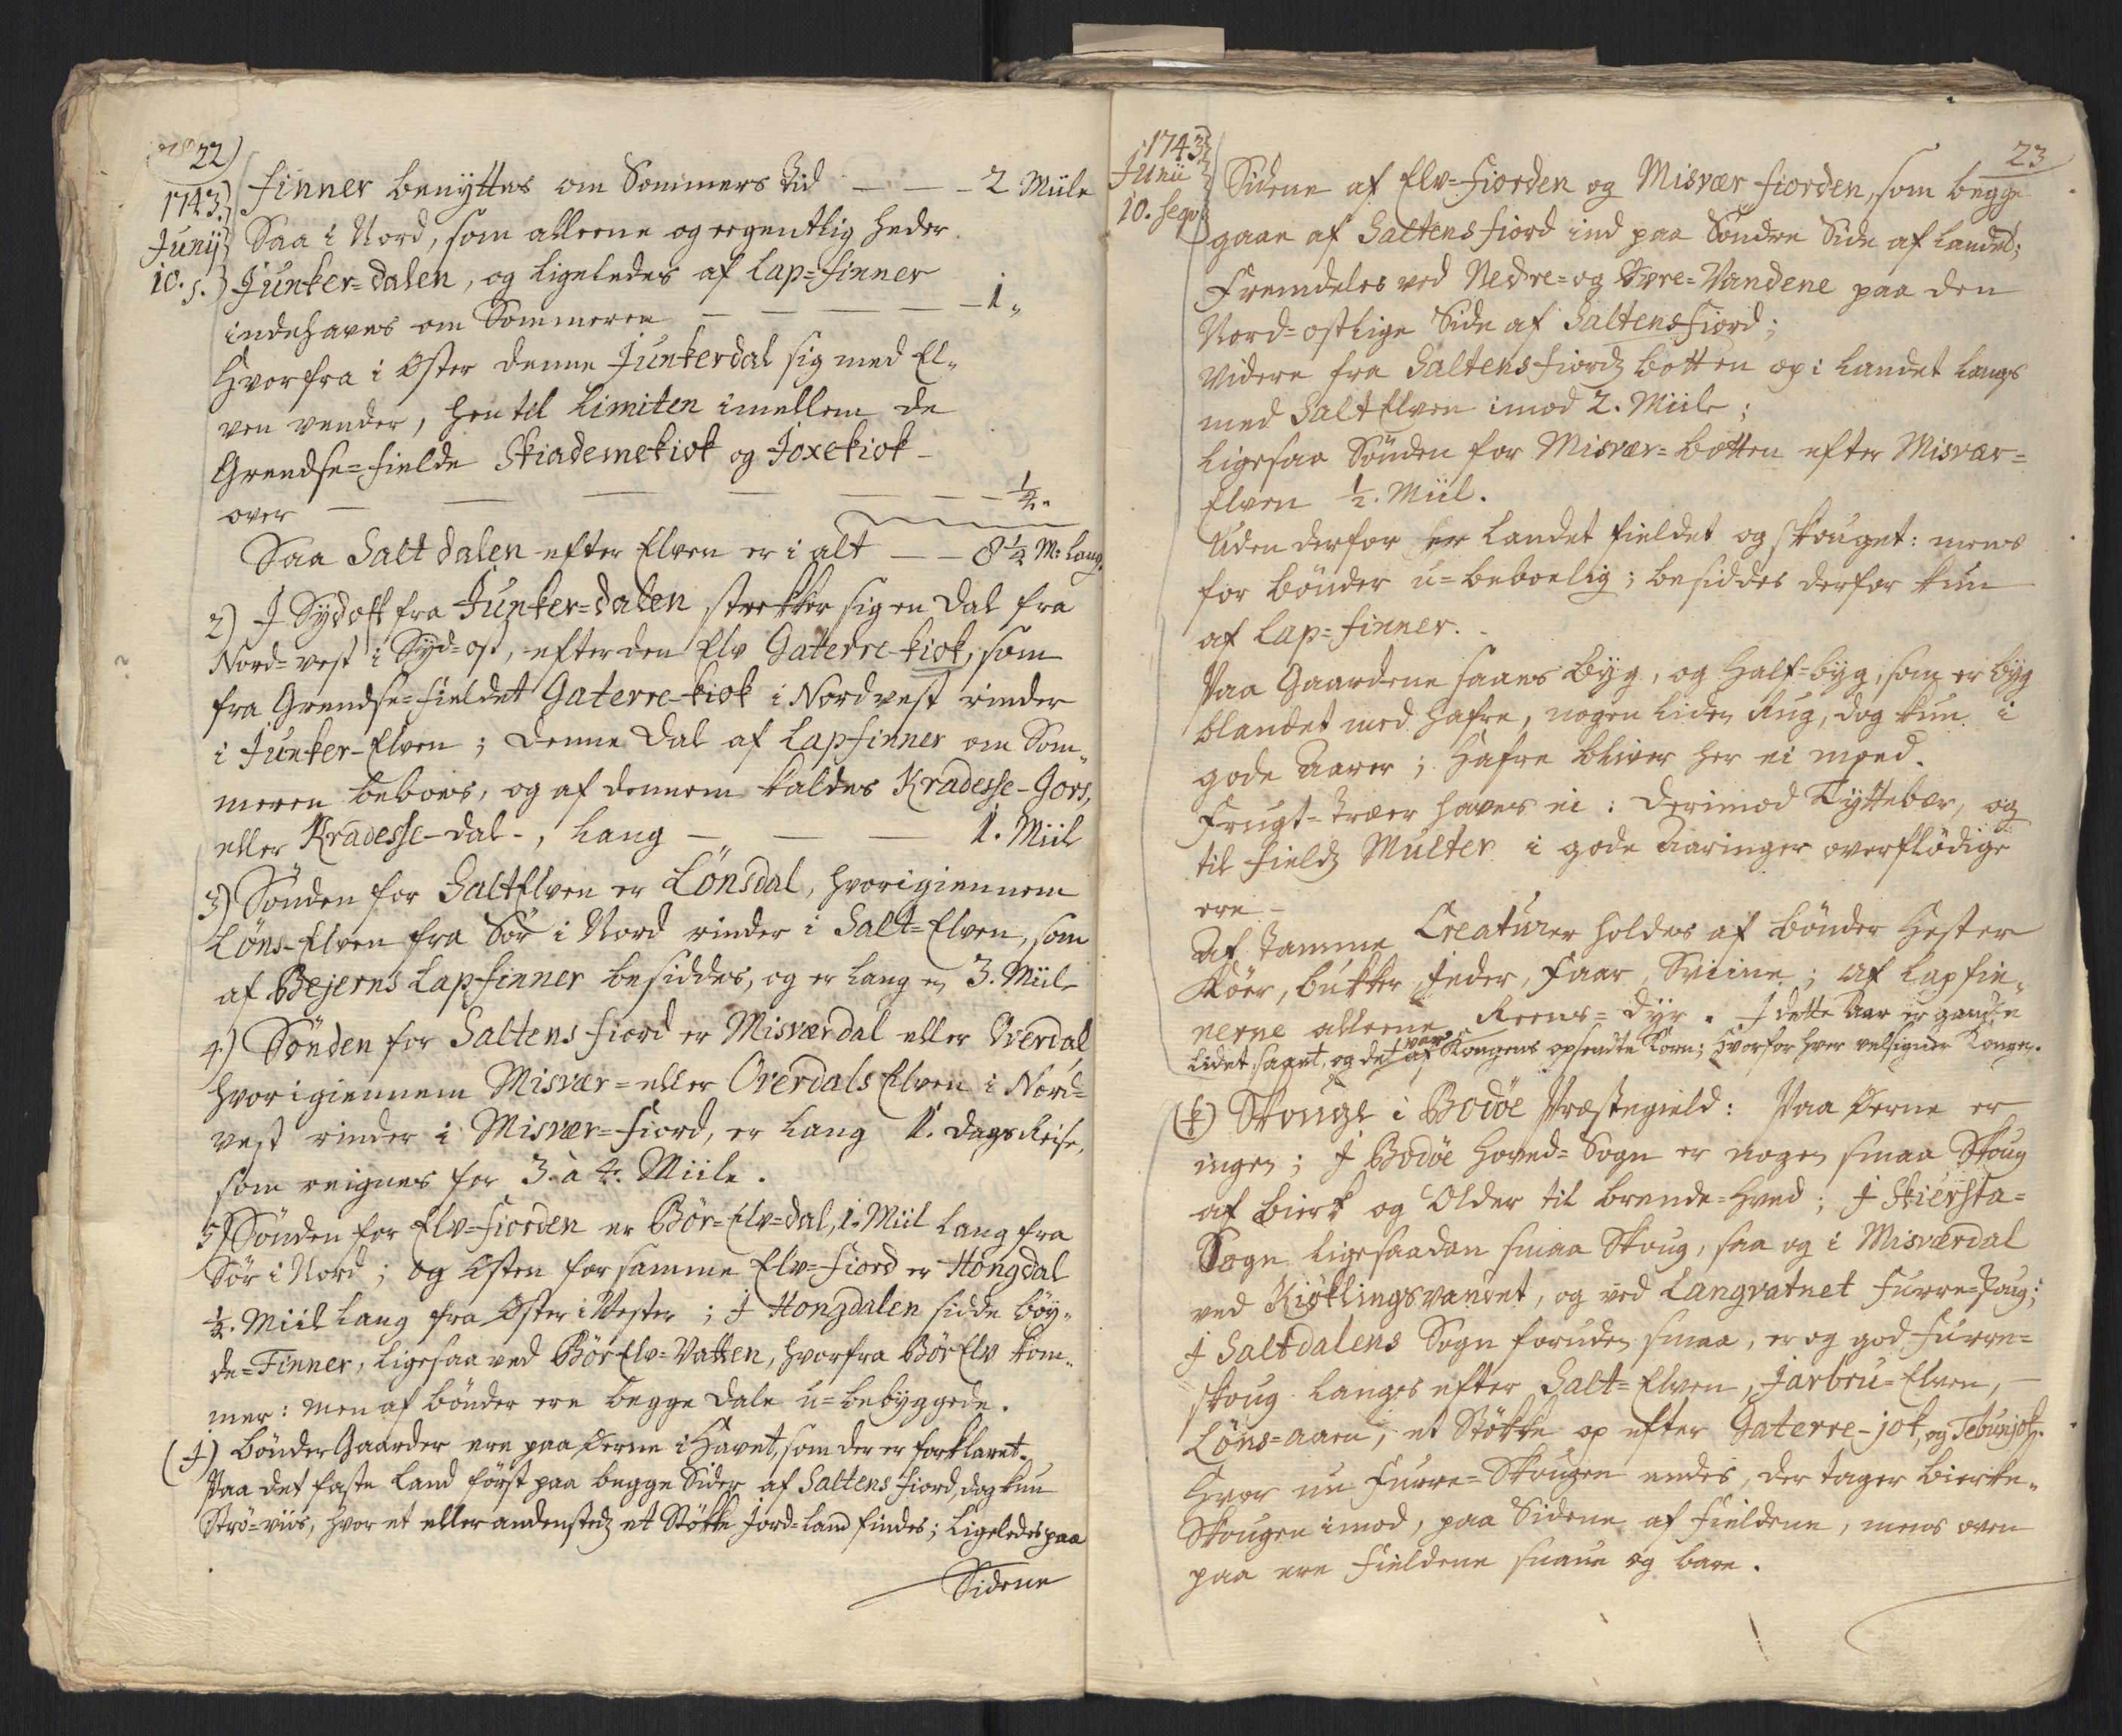 22)
1743.
Junij
10. s.
Finner benyttes om Sommers Tid — — - 2 Miile
Saa i Nord, som alleene og egentlig heder
Junker=dalen, og ligeledes af Lap=finner
indehaves om Sommeren — — — — 1„
Hvorfra i Øster denne Junkerdal sig med El„
ven vender, hen til Limiten imellem de
Grendse=fielde Skiademekiok og Joxekiok -
over — — — — — - - ½.
Saa Saltdalen efter Elven er i alt — — 8½ M: Lang.
2) I Sydost fra Junker=dalen strekker sig en Dal fra
Nord=vest i Syd=ost, efter den Elv Gaterre-kiok, som
fra Grendse=fieldet Gaterre-kiok i Nordvest rinder
i Junker-Elven; denne Dal af Lapfinner om Som„
meren beboes, og af dennem kaldes Kradesse-Gors,
eller Kradesse-dal-, lang — — — 1. Miil
3) Sönden for SaltElven er Lönsdal, hvorigiennem
Löns-Elven fra Sör i Nord rinder i Salt=Elven, som
af Bejerns Lapfinner besiddes, og er lang en 3. Miil
4) Sönden for Saltens fiord er Misværdal eller Overdal
hvorigiennem Misvær=eller Overdals Elven i Nord=
vest rinder i Misvær=fiord, er lang 1. dags Reise,
som reignes for 3. à 4. Miile.
5) Sönden for Elv=fiorden er Bör=Elv=dal, 1. Miil lang fra
Sör i Nord; og Østen for samme Elv=fiord er Hongdal
½. Miil lang fra Øster i Vester; I Hongdalen sidde böy„
de=Finner, ligesaa ved BörElv=Vatten, hvorfra BörElv kom„
mer: men af bönder ere begge Dale u=bebyggede.
(I) Bönder Gaarder ere paa Øerne i Havet, som der er forklaret.
Paa det faste Land först paa begge Sider af Saltens fiord, dog kun
Strö=viis, hvor et eller andensteds et Stökke Jord=Land findes; Ligeledes paa
Sidene
23
1743
Junii
10. seqv
Sidene af Elv=Fiorden og Misvær fiorden, som begge
gaae af Saltens fiord ind paa Søndre Side af Landet;
Fremdeles ved Nedre=og Øvre=Vandene paa den
Nord=ostlige Side af Saltensfiord;
Videre fra Saltens fiords Botten op i Landet langs
med SaltElven imod 2. Miile;
Ligesaa Sönden for Misvær=Botten efter Misvær=
Elven ½. Miil.
Uden derfor er Landet fieldet og skouget: mens
for Bönder u=beboelig; besiddes derfor kun
af Lap=finner.
Paa Gaardene saaes Byg, og Half=byg, som er byg
blandet med Hafre, nogen liden Rug, dog kun i
gode Aarer; Hafre bliver her ei moed.
Frugt=Træer haves ei: Derimod Tyttebær, og
til fields Multer i gode Aaringer overflödige
ere -
Af Tamme Creaturer holdes af Bönder Hester
Köer, Bukker, Jeder, Faar, Sviine; Af Lapfin„
nerne alleene Reens=Dyr. I dette Aar er gandske
lidet saaet, og det var af Kongens opsendte Korn; Hvorfor hver velsigner Kongen.
(k) Skouge i Bodöe Præstegield: Paa Øerne er
ingen; I Bodöe Hoved=Sogn er nogen smaa Skoug
af Bierk og Older til brende=Hved; I Skiersta=
Sogn ligesaadan smaa Skoug, saa og i Misværdal
ved Kiöklingsvandet, og ved Langvatnet Furre=skoug;
I Saltdalens Sogn foruden smaa, er og god Furre=
skoug langs efter Salt=Elven, Jarbru=Elven,
Löns=aaen, et Stökke op efter Gaterre-jok, og Teburjok.
Hvor nu Furre=Skougen endes, der tager Bierke„
Skougen imod, paa Sidene af Fieldene, mens oven
paa ere Fieldene snaue og bare.